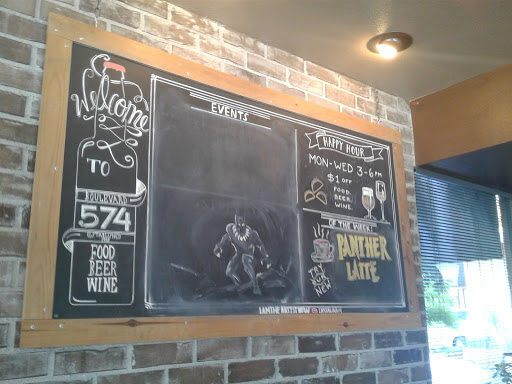 Welcome
TO
BOULEVARD
574
FOOD
BEER
WINE
EVENTS
HAPPY HOUR
MON-WED 3-6PM
$1 OFF
FOOD
BEER
WINE
OF THE WEEK!
PANTHER
LATTE